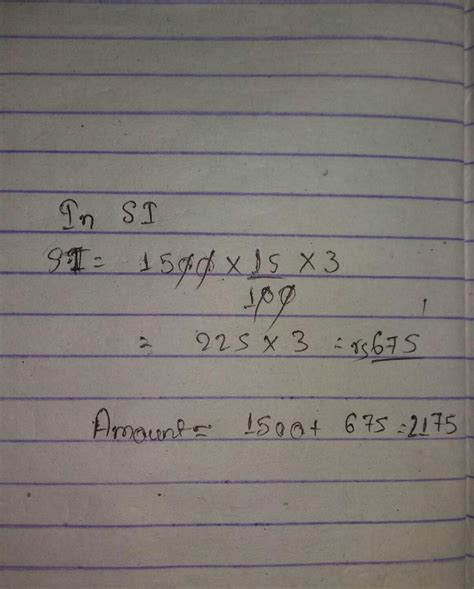 In SI
SI = 1500 × 15 × 3
100
= 225 × 3 = rs 675
Amount = 1500 + 675 = 2175